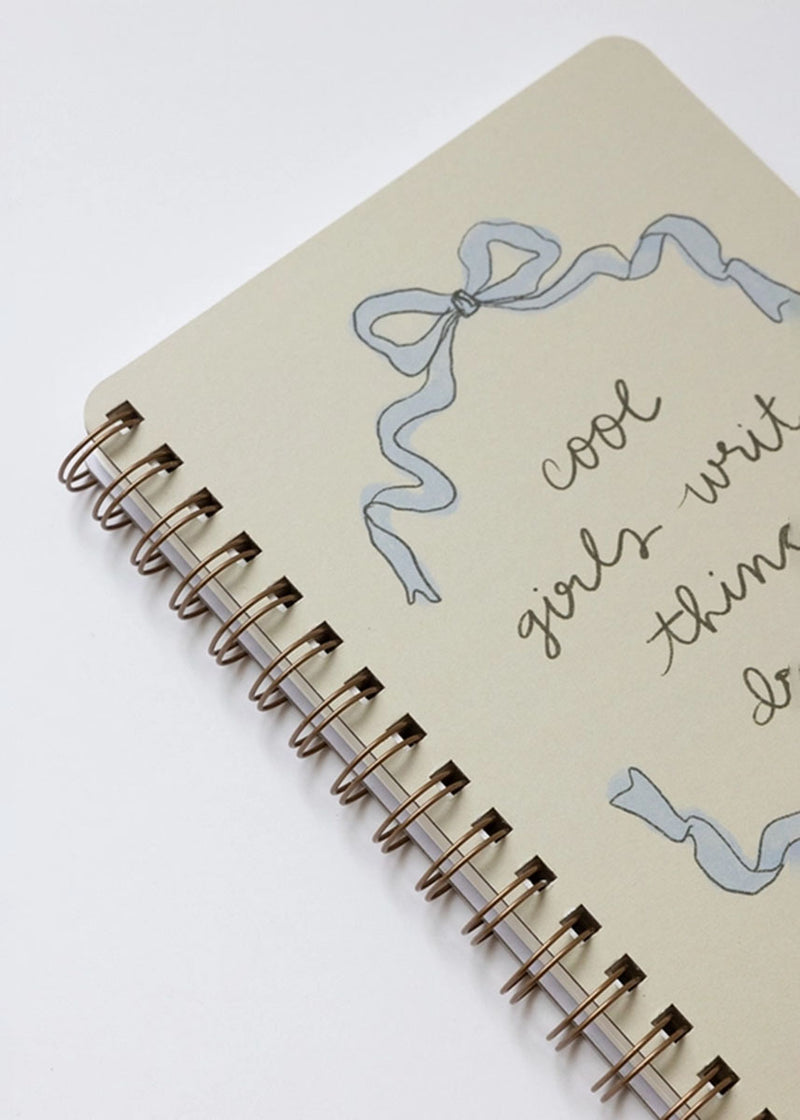 cool
girls writ
thin